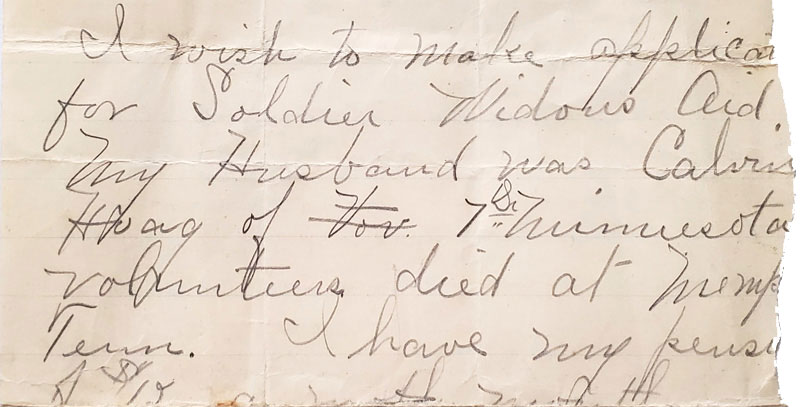 I wish to make applica
for Soldier Widows Aid.
My Husband was Calvin
Hoag of Vov. 7th Minnesota
volunteers died at Memp
Tenn. I have my pensi
of $12 a month